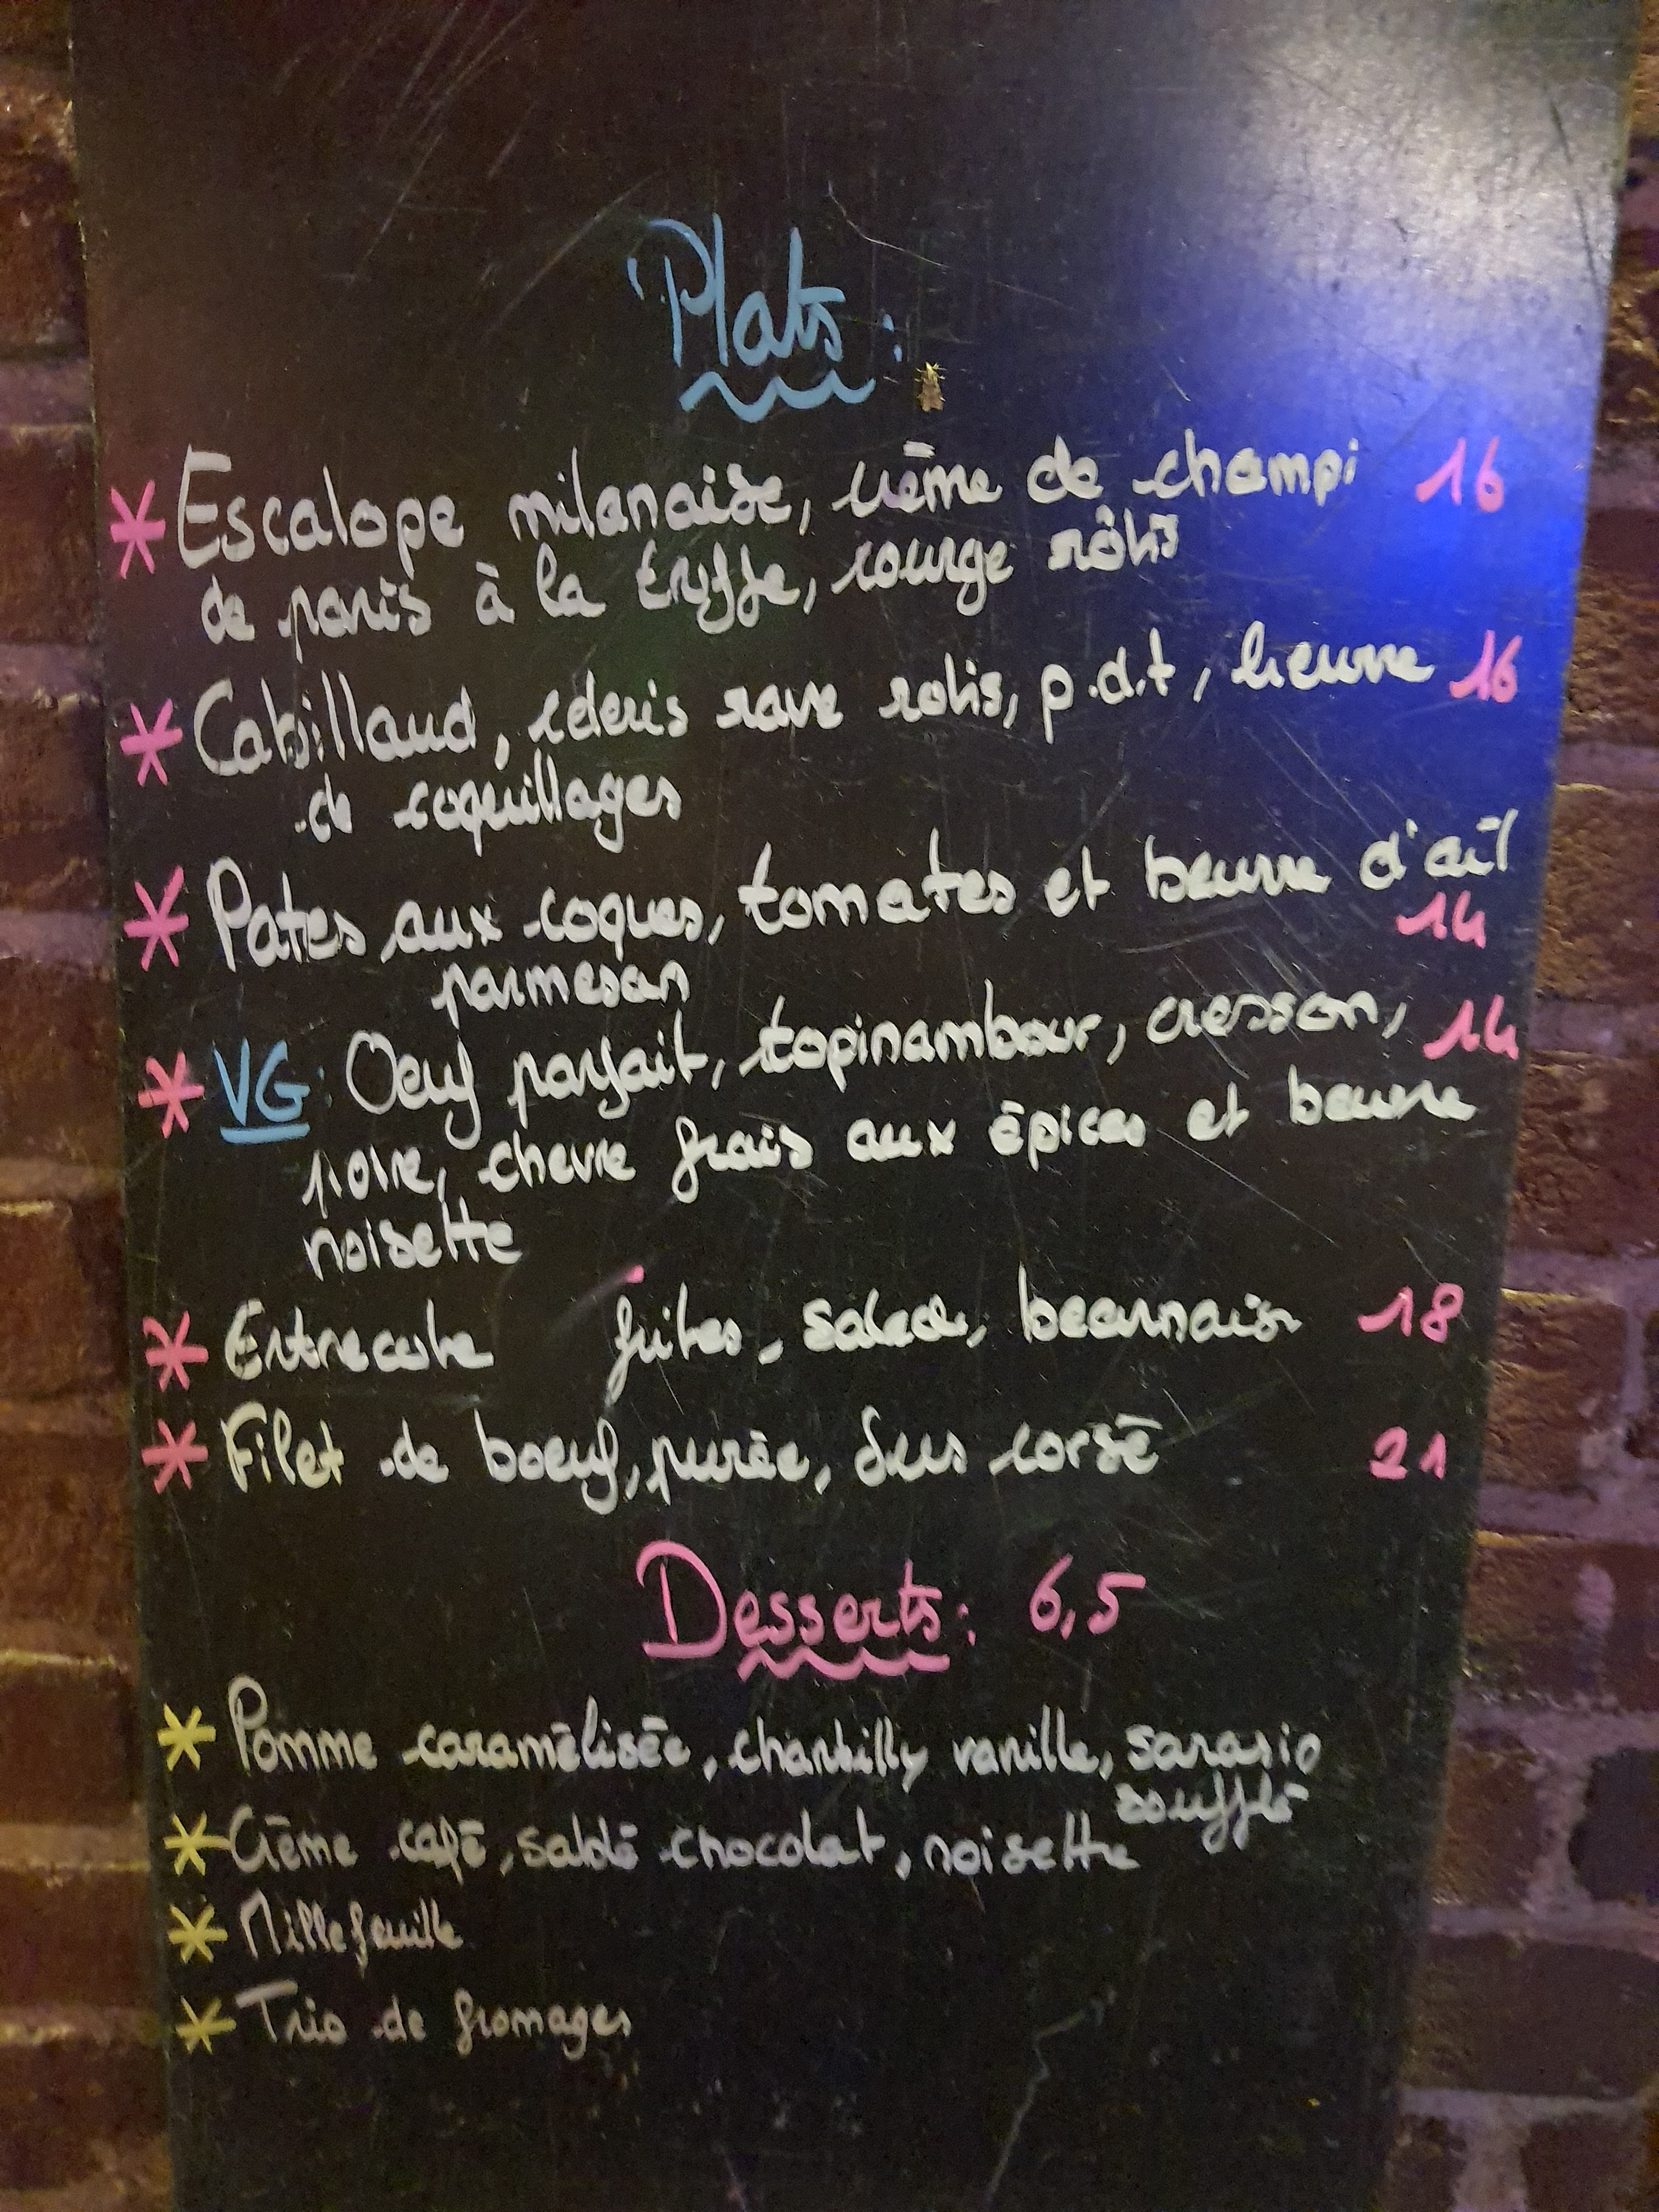 Plats :
* Escalope milanaise, crème de champi 16
de paris à la truffe, courge rôtis
* Cabillaud, céleris rave rotis, p.d.t, beurre 16
de coquillages
* Pates aux coques, tomates et beurre d'ail
14
parmesan
* VG : Oeuf parfait, topinambour, cresson, 14
poire, chevre frais aux épices et beurre
noisette
* Entrecote frites, salade, bearnaise 18
* Filet de boeuf, purée, Jus corsé 21
Desserts : 6,5
* Pomme caramélisée, chantilly vanille, sarasin
soufflé
* Crème café, sablé chocolat, noisette
* Millefeuille
* Trio de fromages